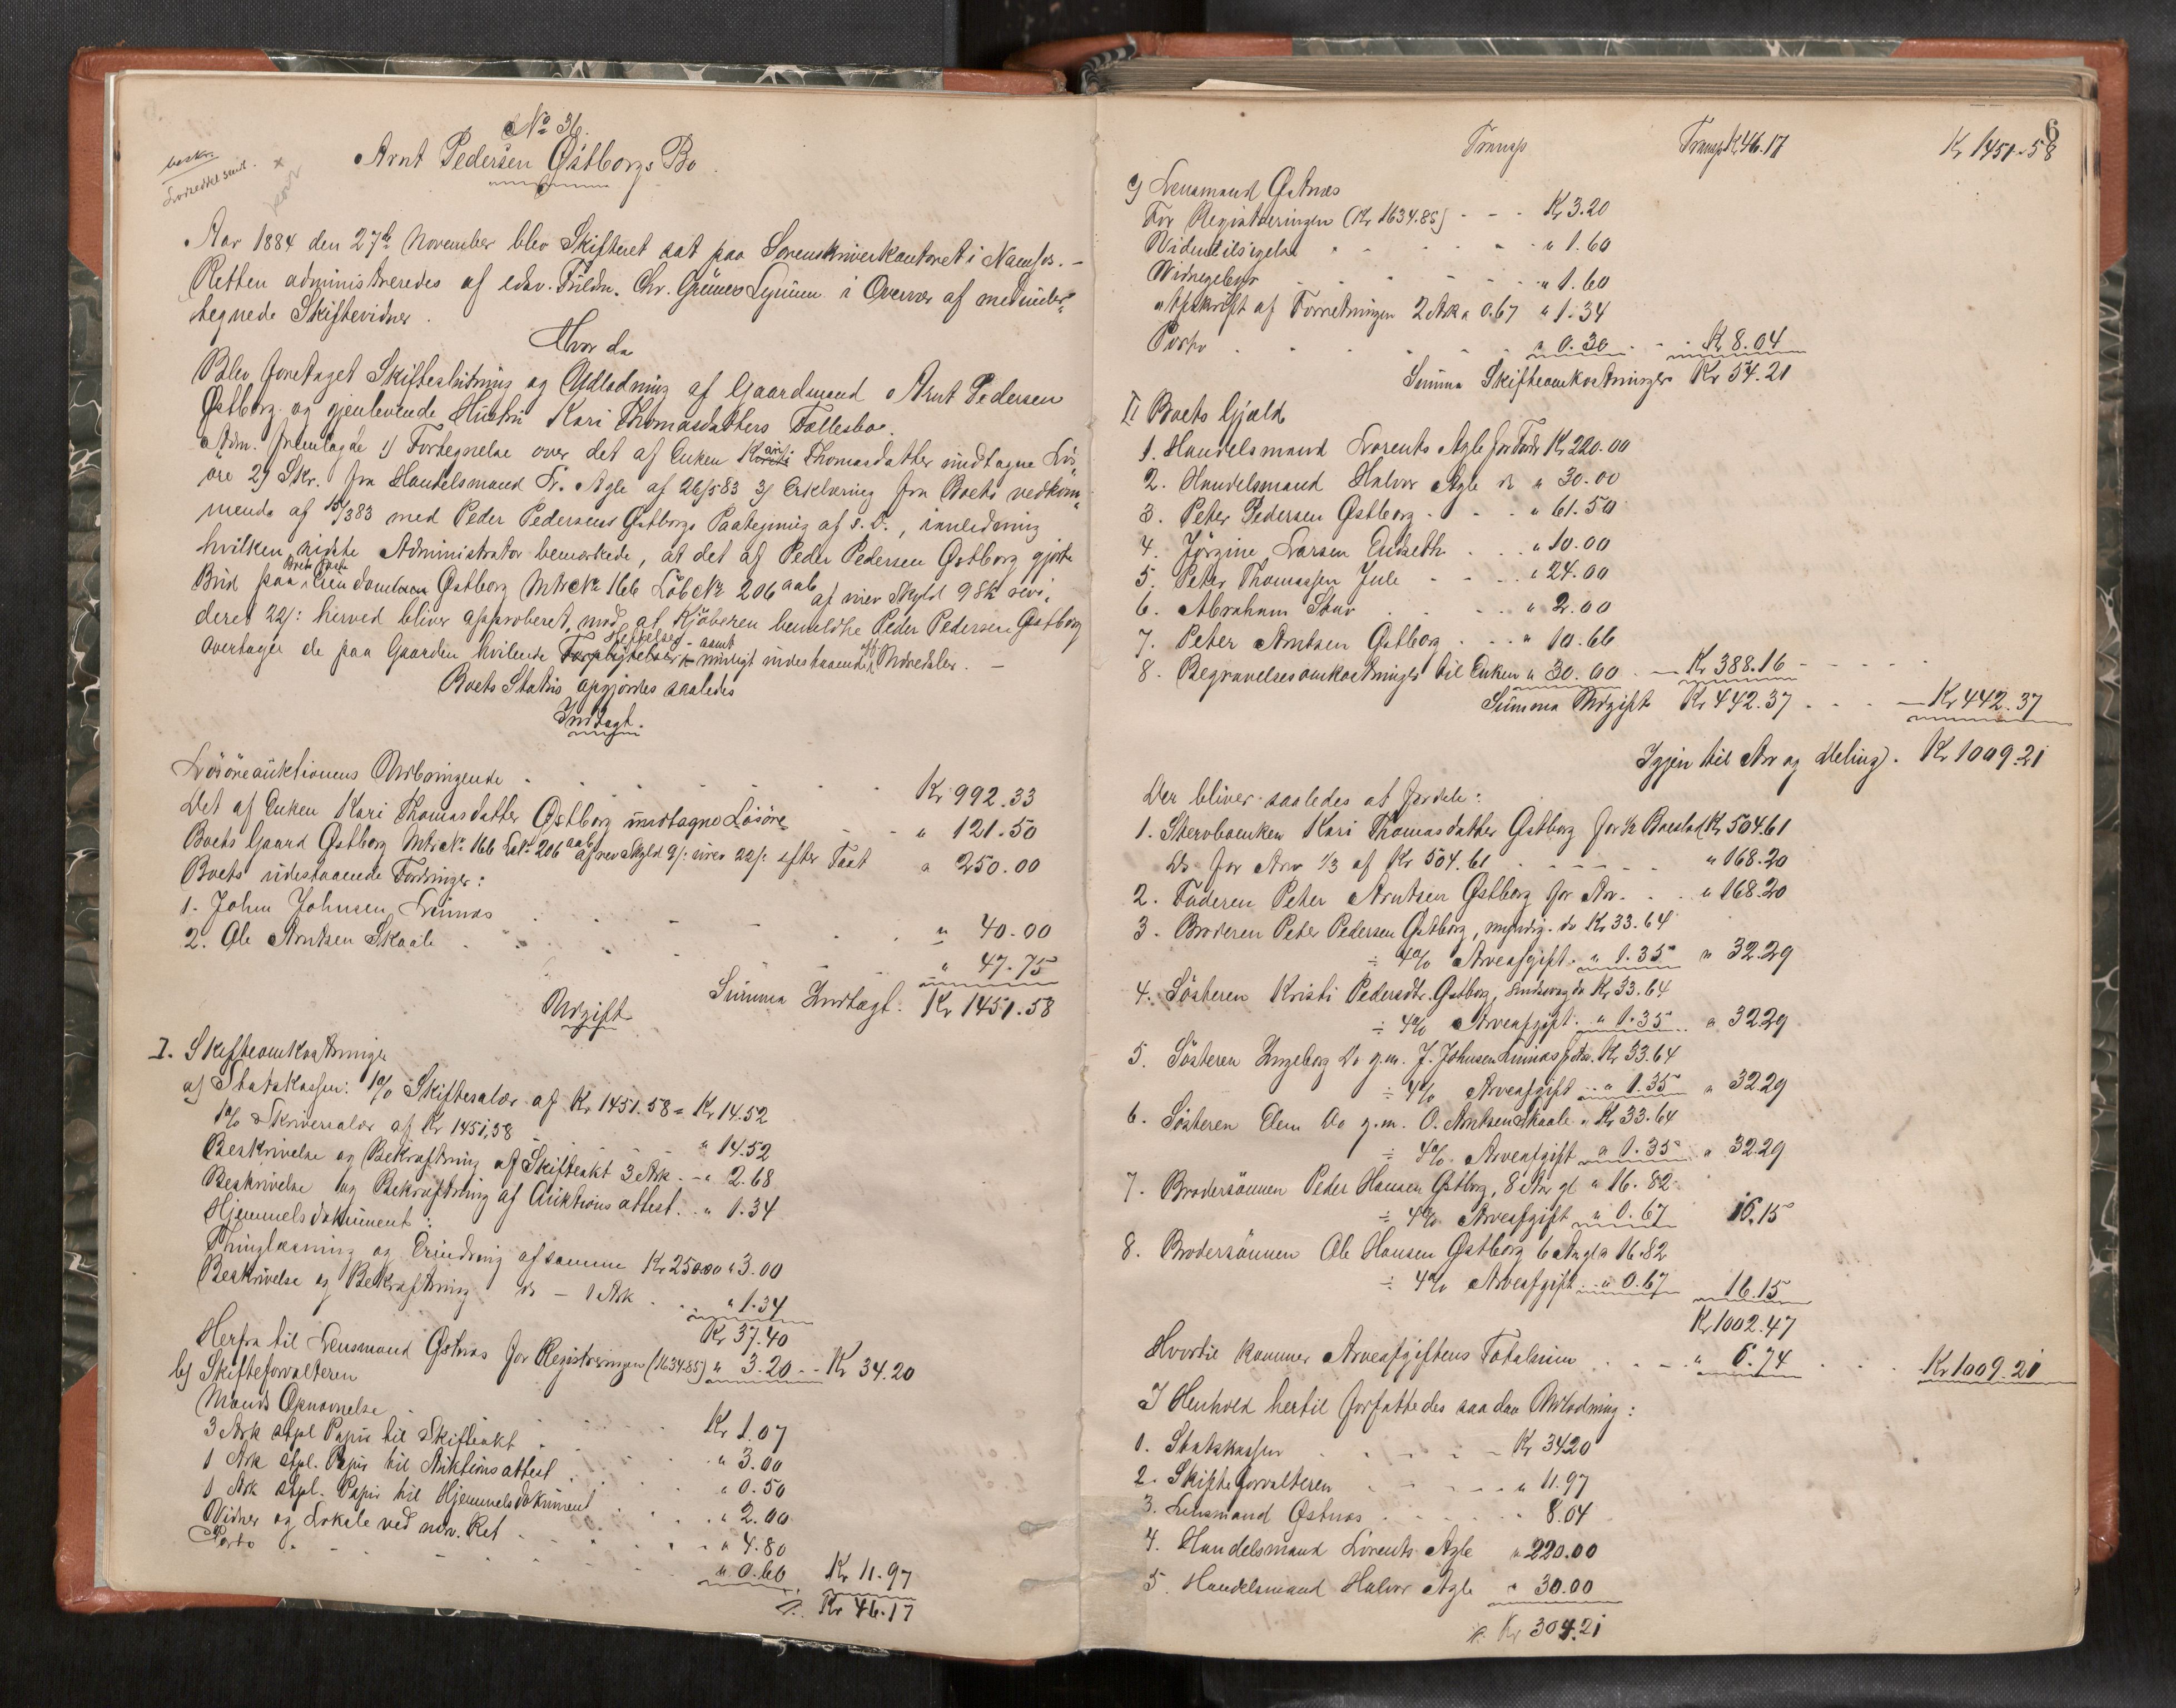 No 36.
Arnt Pedersen Östborgs Bo.
beskr.
Lodseddel sendt.
Aar 1884 den 27de November blev Skifteret sat paa Sorenskriverkontoret i Namsos. –
Retten administreredes af edsv. Fuldm. Chr. Grüner i Overvær af medunder-
tegnede Skiftevidner.
Hvor da
Blev foretaget Skifteslutning og Udlodning af Gaardmand Arnt Pedersen
Östborg og gjenlevende Hustru Kari Thomasdatters Fællesbo.
Adm. fremlagde 1) Fortegnelse over det af Enken Kari Thomasdatter undtagne Lös-
öre 2) Skr. fra Handelsmand Lr. Agle af 26/5 83 3) Erklæring fra Boets vedkom-
mende af 15/3 83 med Peder Pedersens Östborgs Paategning af s. D., i anledning
hvilken sidste Administrator bemærkede, at det af Peder Pedersen Östborg gjorte
Bud paa Boets faste Eiendom Östborg Mtr No 166 Löb No 206 aab af nier Skyld 9 sk revi-
deret 22/: herved bliver approberet, mod at Kjöberen bemeldte Peder Pedersen Östborg
overtager de paa Gaarden hvilende Heftelser samt muligt indestaaende af Udredsler. –
Boets Status opgjordes saaledes
Indtægt.
Lösöreauktionens Udbringende Kr 992.33
Det af Enken Kari Thomasdatter Östborg undtagne Lösöre " 121.50
Boets Gaard Östborg Mtr No 166 L No 206 aab af rev Skyld 9/: urev 22/: efter Taxt " 250.00
Boets udestaaende Fordringer:
1. John Johnsen Leirnæs " 40.00
2. Ole Arntsen Skaale " 47.75
Summa Indtægt. Kr 1451.58
Udgift
I. Skifteomkostninger
a) Statskassen: 1% Skiftesalær af Kr 1451.58 = Kr 14.52
1% Skriversalær af Kr 1451,58 " 14.52
Beskrivelse og Bekræftning af Skifteakt 3 Ark " 2.68
Beskrivelse og Bekræftning af Auktionsattest " 1.34
Hjemmelsdokument:
Thinglæsning og Erindring af samme Kr 250.00 " 3.00
Beskrivelse og Bekræftning do – 1 Ark " 1.34
Kr 37.40
Herfra til Lensmand Östnæs for Registreringen (1634.85) " 3.20 – Kr 34.20
b) Skifteforvalteren
Mands Opnævnelse Kr 1.07
3 Ark stpl Papir til Skifteakt " 3.00
1 Ark stpl. Papir til Auktionsattest " 0.50
1 Ark stpl. Papir til Hjemmelsdokument " 2.00
Vidner og Lokale ved ndv. Ret " 4.80
Porto " 0.60 Kr 11.97
Kr 46.17
6
Transp Transp Kr 46.17 Kr 1451.58
c) Lensmand Östnæs
For Registreringen (Kr 1634.85) Kr 3.20
Vidnetilsigelse " 1.60
Vidnegebyr " 1.60
Afskrift af Forretningen 2 Ark a 0.67 " 1.34
Porto " 0.30 Kr 8.04
Summa Skifteomkostninger Kr 54.21
II Boets Gjæld
1. Handelsmand Lorents Agle for Varer Kr 220.00
2. Handelsmand Halvor Agle do " 30.00
3. Peter Pedersen Östborg " 61.50
4. Jörgine Larsen " 10.00
5. Peter Thomassen Jule " 24.00
6. Abraham Stuv " 2.00
7. Peter Arntsen Östborg " 10.66
8. Begravelsesomkostninger til Enken " 30.00 – Kr 388.16
Summa Udgift Kr 442.37 – Kr 442.37
Igjen til Arv og deling. Kr 1009.21
Der bliver saaledes at fordele:
1. Stervboenken Kari Thomasdatter Östborg for ½ Boeslod Kr 504.61
Do for Arv 1/3 af Kr 504.61 " 168.20
2. Faderen Peter Arntsen Östborg for Arv " 168.20
3. Broderen Peter Pedersen Östborg, myndig do Kr 33.64
÷ 4% Arveafgift " 1.35 " 32.29
4. Sösteren Kristi Pedersdtr. Östborg, do Kr 33.64
÷ 4% Arveafgift " 1.35 " 32.29
5. Sösteren Ingeborg Do g.m. J. Johnsen Leirnæs Kr 33.64
÷ 4% Arveafgift " 1.35 " 32.29
6. Sösteren Elen Do g.m. O. Arntsen Skaale " Kr 33.64
÷ 4% Arveafgift " 1.35 " 32.29
7. Brodersönnen Peder Hansen Östborg, 8 Aar gl " 16.82
÷ 4% Arveafgift " 0.67 16.15
8. Brodersönnen Ole Hansen Östborg 6 Aar gl " 16.82
÷ 4% Arveafgift " 0.67 16.15
Kr 1002.47
Hvortil kommer Arveafgiftens Totalsum " 6.74 Kr 1009.21
I Henhold hertil forfattedes saadan Udlodning:
1. Statskassen Kr 34.20
2. Skifteforvalteren " 11.97
3. Lensmand Östnæs " 8.04
4. Handelsmand Lorents Agle " 220.00
5. Handelsmand Halvor Agle " 30.00
Kr 304.21